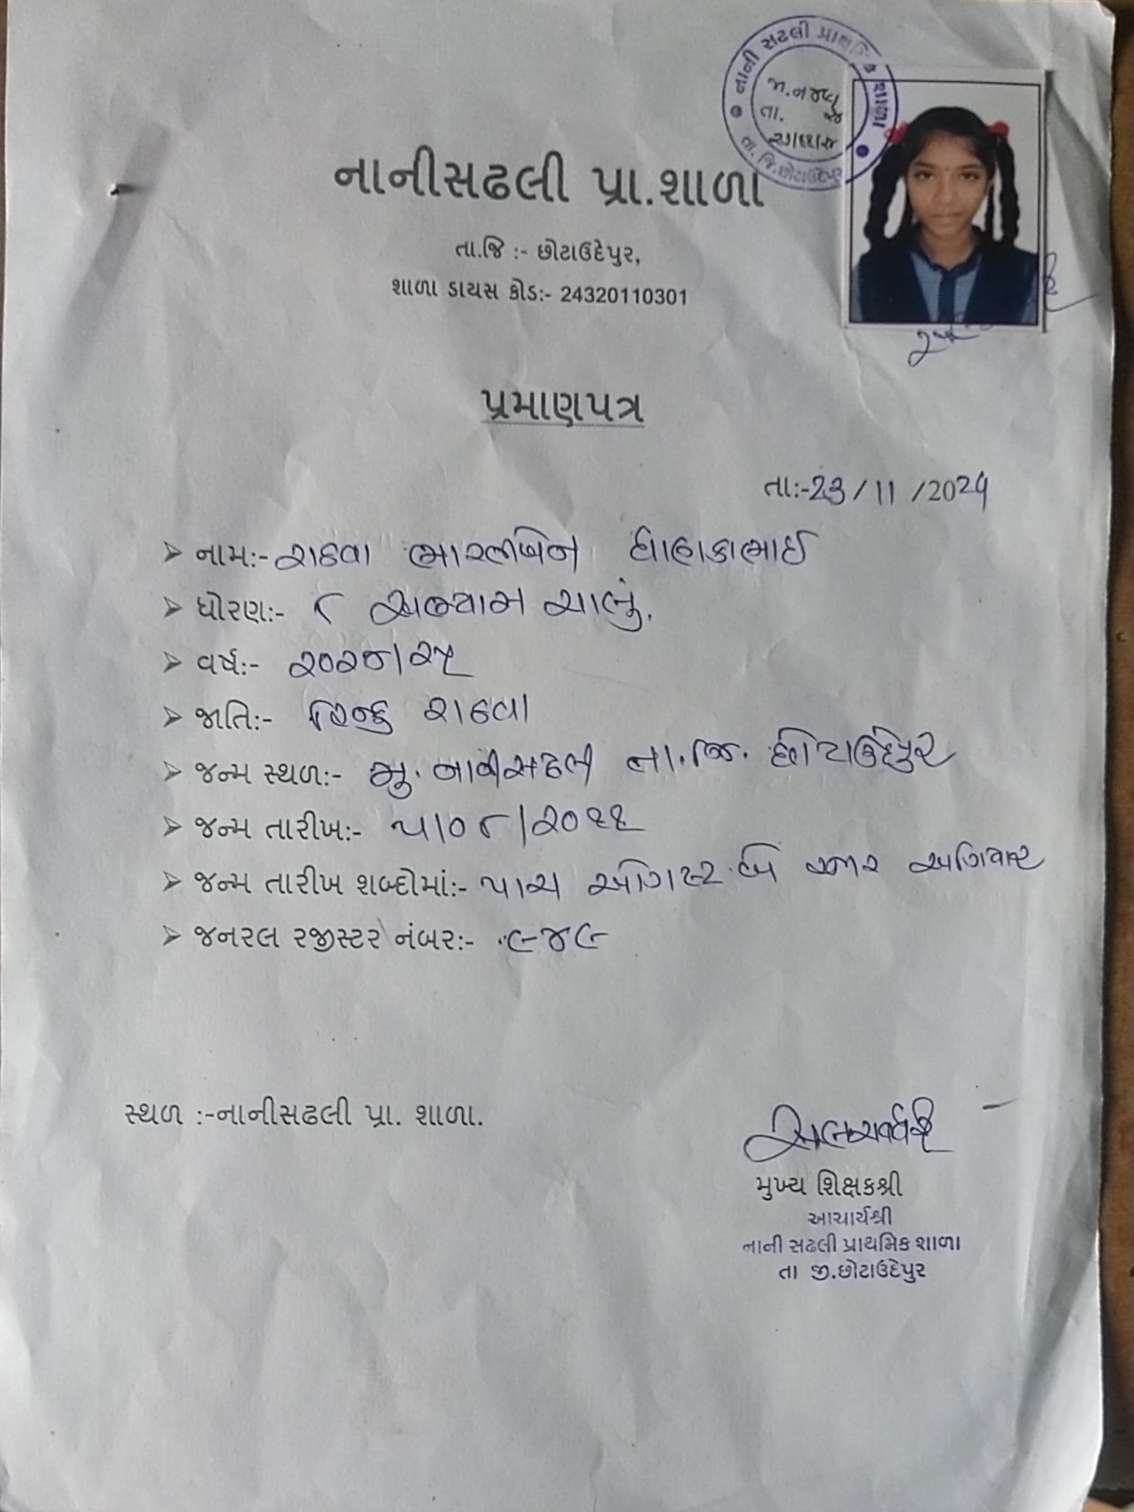 નાની સઢલી પ્રાથમિક શાળા
જા.ન
તા.
તા. જિ. છોટાઉદેપુર
નાનીસઢલી પ્રા.શાળા
તા.જિ :- છોટાઉદેપુર,
શાળા ડાયસ કોડ:- 24320110301
પ્રમાણપત્ર
તા:-23/11/2024
➤ નામ:- રાઠવા ભારતીબેન
➤ ધોરણ:- ૮ અભ્યાસ ચાલું.
➤ વર્ષ:- ૨૦૨૪/૨૫
➤ જાતિ:- હિન્દુ રાઠવા
➤ જન્મ સ્થળ:- મુ. નાનીસઢલી તા.જિ. છોટાઉદેપુર
➤ જન્મ તારીખ:- ૫/૦૮/૨૦૧૧
➤ જન્મ તારીખ શબ્દોમાં:- પાચ ઓગષ્ટ બે હજાર અગિયાર
➤ જનરલ રજીસ્ટર નંબર:- ૯૪૯
સ્થળ :-નાનીસઢલી પ્રા. શાળા.
મુખ્ય શિક્ષકશ્રી
આચાર્યશ્રી
નાની સઢલી પ્રાથમિક શાળા
તા જી.છોટાઉદેપુર